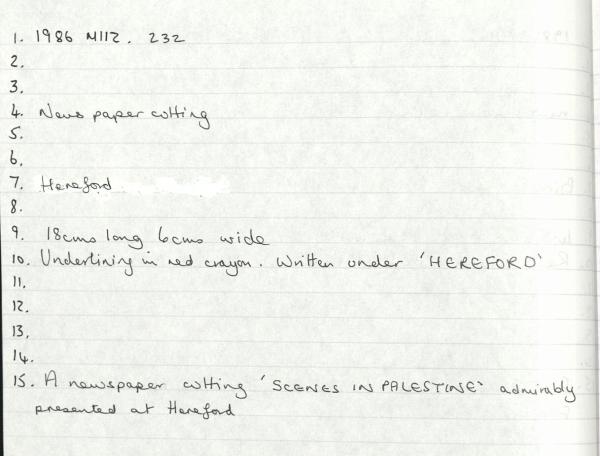 1. 1986 M112. 232
2.
3.
4. News paper cutting
5.
6.
7. Hereford
8.
9. 18cms long 6cms wide
10. Underlining in red crayon. Written under 'HEREFORD'
11.
12.
13.
14.
15. A newspaper cutting 'SCENES IN PALESTINE' admirably
presented at Hereford